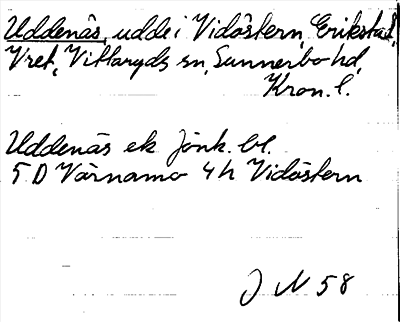 Uddenäs, udde i Vidöstern, Erikstad,
Vret, Vittaryds sn, Sunnerbo hd,
Kron. l.
Uddenäs ek Jönk. bl.
5 D Värnamo 4 h Vidöstern
J N 58